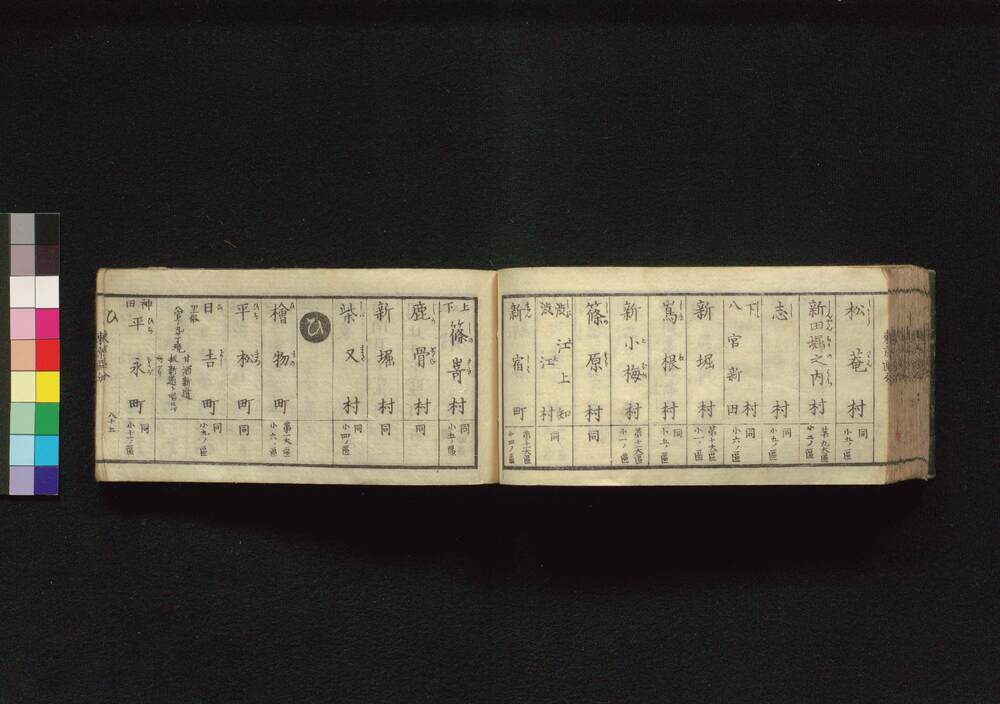 松菴村 同小九ノ區
新田堀之内村 第九大區小二ノ區
志村 同小九ノ區
下八官新田村 同小六ノ區
新堀村 第十大區小一ノ區
嶌根村 同小五ノ區
新小梅村 第十一大區小一ノ區
篠原村 同
澁江上知
澁江村 同
新宿町 第十一大區小四ノ區
上下篠嵜村 同小五ノ區
鹿骨村 同
新堀村 同
柴又村 同小四ノ區
ひ
檜物町 第一大區小六ノ區
平松町 同
日吉町 同小九ノ區
甘酒新道
神田平永町 同小十一ノ區
ひ
八十五